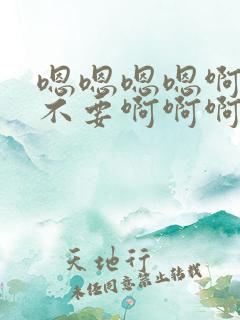 嗯嗯嗯嗯啊
不要啊啊啊
天地行
未经同意禁止转载